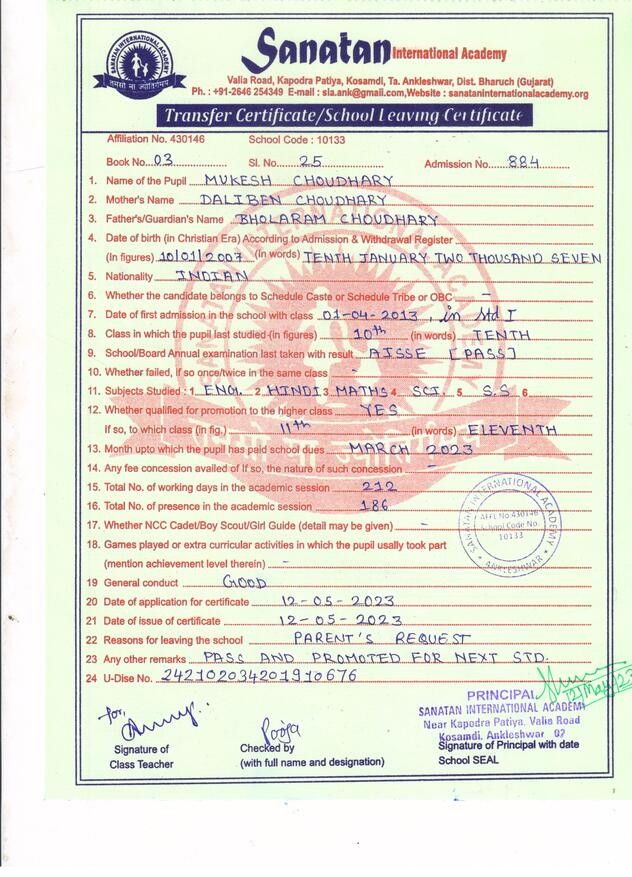 SANATAN INTERNATIONAL ACADEMY
तमसो मा ज्योतिर्गमय
Sanatan International Academy
Valia Road, Kapodra Patiya, Kosamdi, Ta. Ankleshwar, Dist. Bharuch (Gujarat)
Ph. : +91-2646 254349 E-mail : sia.ank@gmail.com,Website : sanataninternationalacademy.org
Transfer Certificate/School Leaving Certificate
Affiliation No. 430146 School Code : 10133
Book No. 03 Sl. No. 25 Admission No. 884
1. Name of the Pupil MUKESH CHOUDHARY
2. Mother's Name DALIBEN CHOUDHARY
3. Father's/Guardian's Name BHOLARAM CHOUDHARY
4. Date of birth (in Christian Era) According to Admission & Withdrawal Register
(In figures) 10/01/2007 (In words) TENTH JANUARY TWO THOUSAND SEVEN
5. Nationality INDIAN
6. Whether the candidate belongs to Schedule Caste or Schedule Tribe or OBC -
7. Date of first admission in the school with class 01-04-2013, in std I
8. Class in which the pupil last studied (in figures) 10th (in words) TENTH
9. School/Board Annual examination last taken with result AISSE [PASS]
10. Whether failed, if so once/twice in the same class -
11. Subjects Studied : 1 ENG. 2 HINDI 3 MATHS 4 SCI. 5 S.S 6
12. Whether qualified for promotion to the higher class YES
If so, to which class (in fig.) 11th (in words) ELEVENTH
13. Month upto which the pupil has paid school dues MARCH 2023
14. Any fee concession availed of If so, the nature of such concession -
15. Total No. of working days in the academic session 212
16. Total No. of presence in the academic session 186
17. Whether NCC Cadet/Boy Scout/Girl Guide (detail may be given) -
18. Games played or extra curricular activities in which the pupil usally took part
(mention achievement level therein) -
19 General conduct GOOD
20 Date of application for certificate 12-05-2023
21 Date of issue of certificate 12-05-2023
22 Reasons for leaving the school PARENT'S REQUEST
23 Any other remarks PASS AND PROMOTED FOR NEXT STD.
24 U-Dise No. 242102034201910676
SANATAN INTERNATIONAL ACADEMY
AFFI. No.430146
School Code No.
10133
ANKLESHWAR
for,
Pooja
12/May/23
PRINCIPAL
SANATAN INTERNATIONAL ACADEMY
Near Kapodra Patiya, Valia Road
Kosamdi, Ankleshwar 02
Signature of
Class Teacher
Checked by
(with full name and designation)
Signature of Principal with date
School SEAL